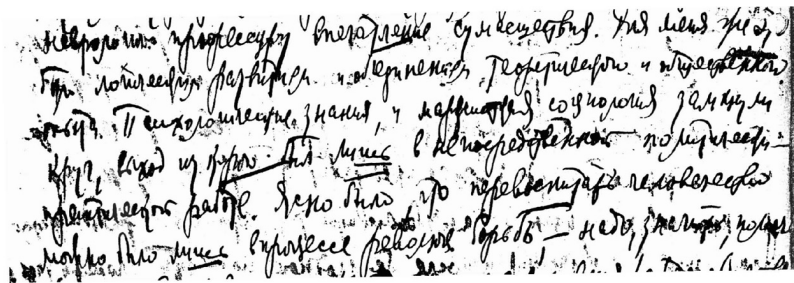 невролога профессору впечатление сумасшествия. Для меня же это
был логическим развитием и объединением теоретического и общественного
опыта. Психологические знания, и марксистская социология замкнули
круг, выход из которого был лишь в непосредственной политически-
практической работе. Ясно было, что перевоспитать человечество
можно было лишь в процессе революц. борьбы, — надо, значит,